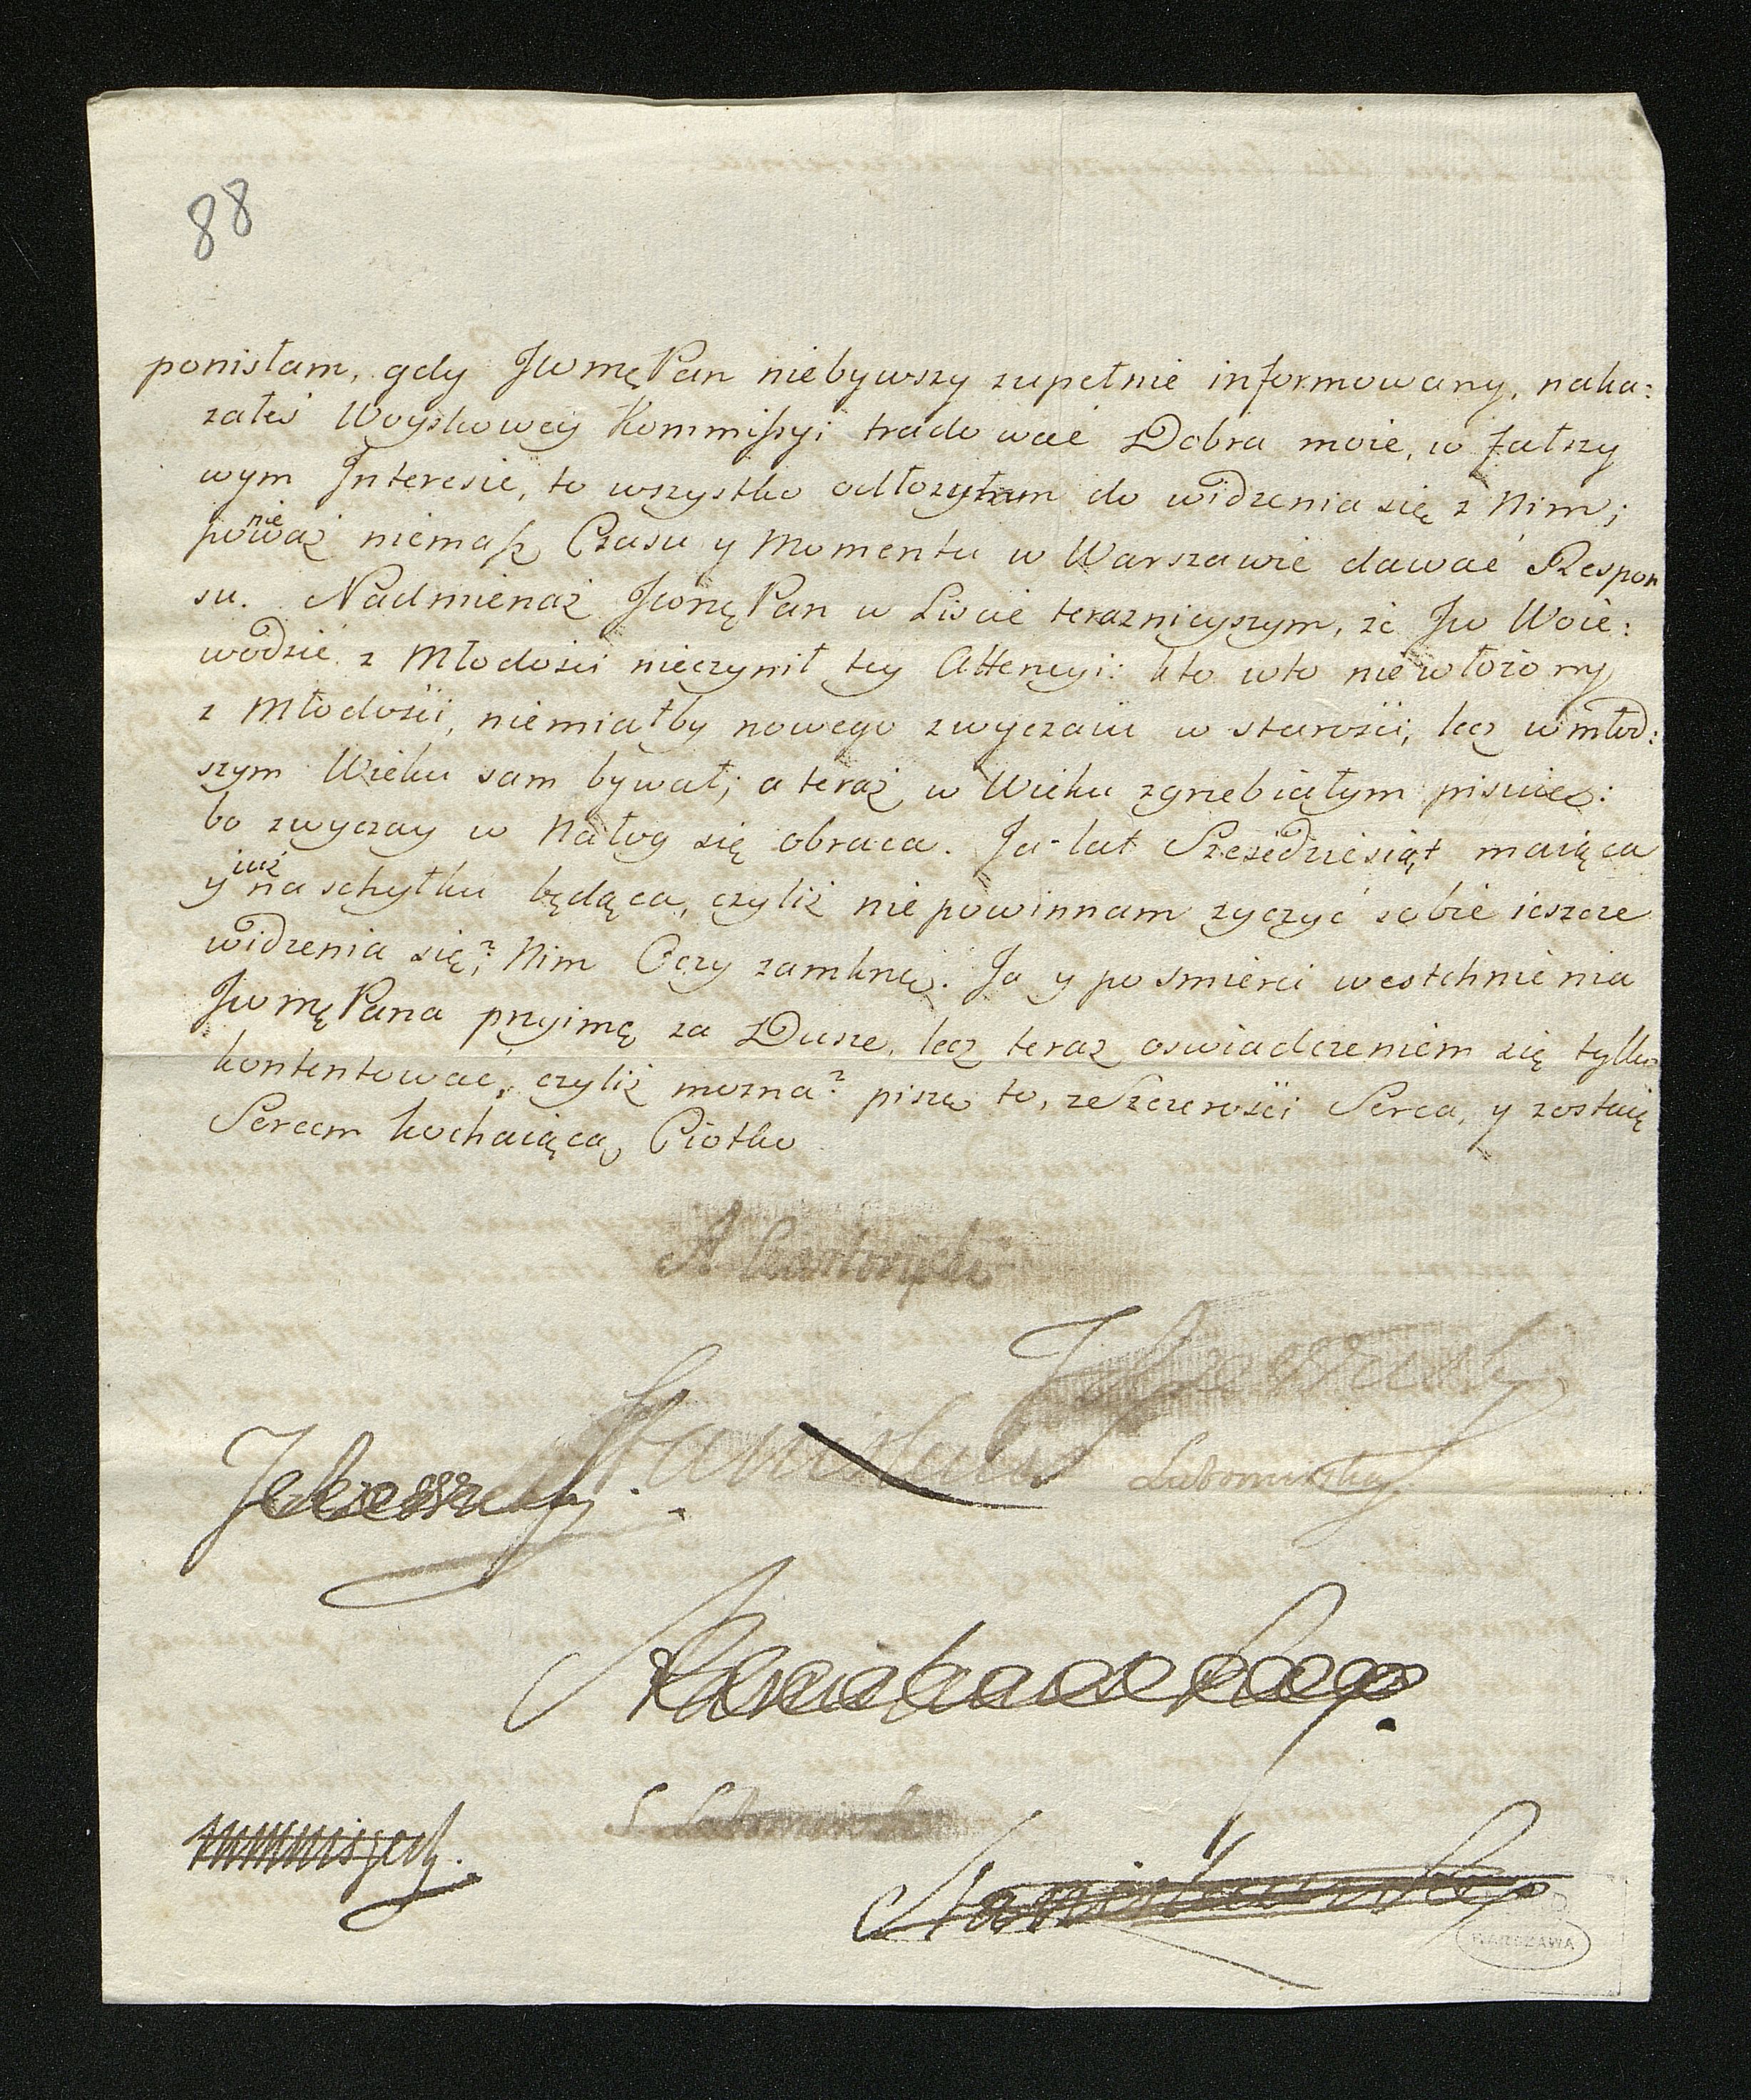 88
ponisłam, gdy JWmę Pan niebywszy zupełnie informowany, naka:
załeś Woyskowey Kommissyi tradować Dobra moie, w fałszy
wym Interesie, to wszystko odłożyłam do widzenia się z Nim;
nie
poważ niemasz Czasu y Momentu w Warszawie dawać Respon
su. Nadmienaż JWmę Pan w Liście teraznieyszym, że Jw Woie:
wodzić z Młodości nieczynił tey Attencyi: kto wto niewłożony
z Młodości, niemiałby nowego zwyczaiu w starości, lecz wmłod:
szym Wieku sam bywał; a teraz w Wieku zgrzebiałym pisuie:
bo zwyczay w Nałog się obraca. Ja lat Sześćdziesiąt maiąca
iuż
y na schyłku będąca, czyliż nie powinnam życzyć sobie ieszcze
widzenia się? Nim Oczy zamknę. Ja y po smierci westchnienia
JWmę Pana przyimę za Dusze, lecz teraz oswiadczeniem się tylko
kontentować, czyliż mozna? piszę to, ze Szczerości Serca, y zostaię
Sercem kochaiąca Ciotka
Stanisław
Lubomirsky
S Lubomirski
WARSZAWA